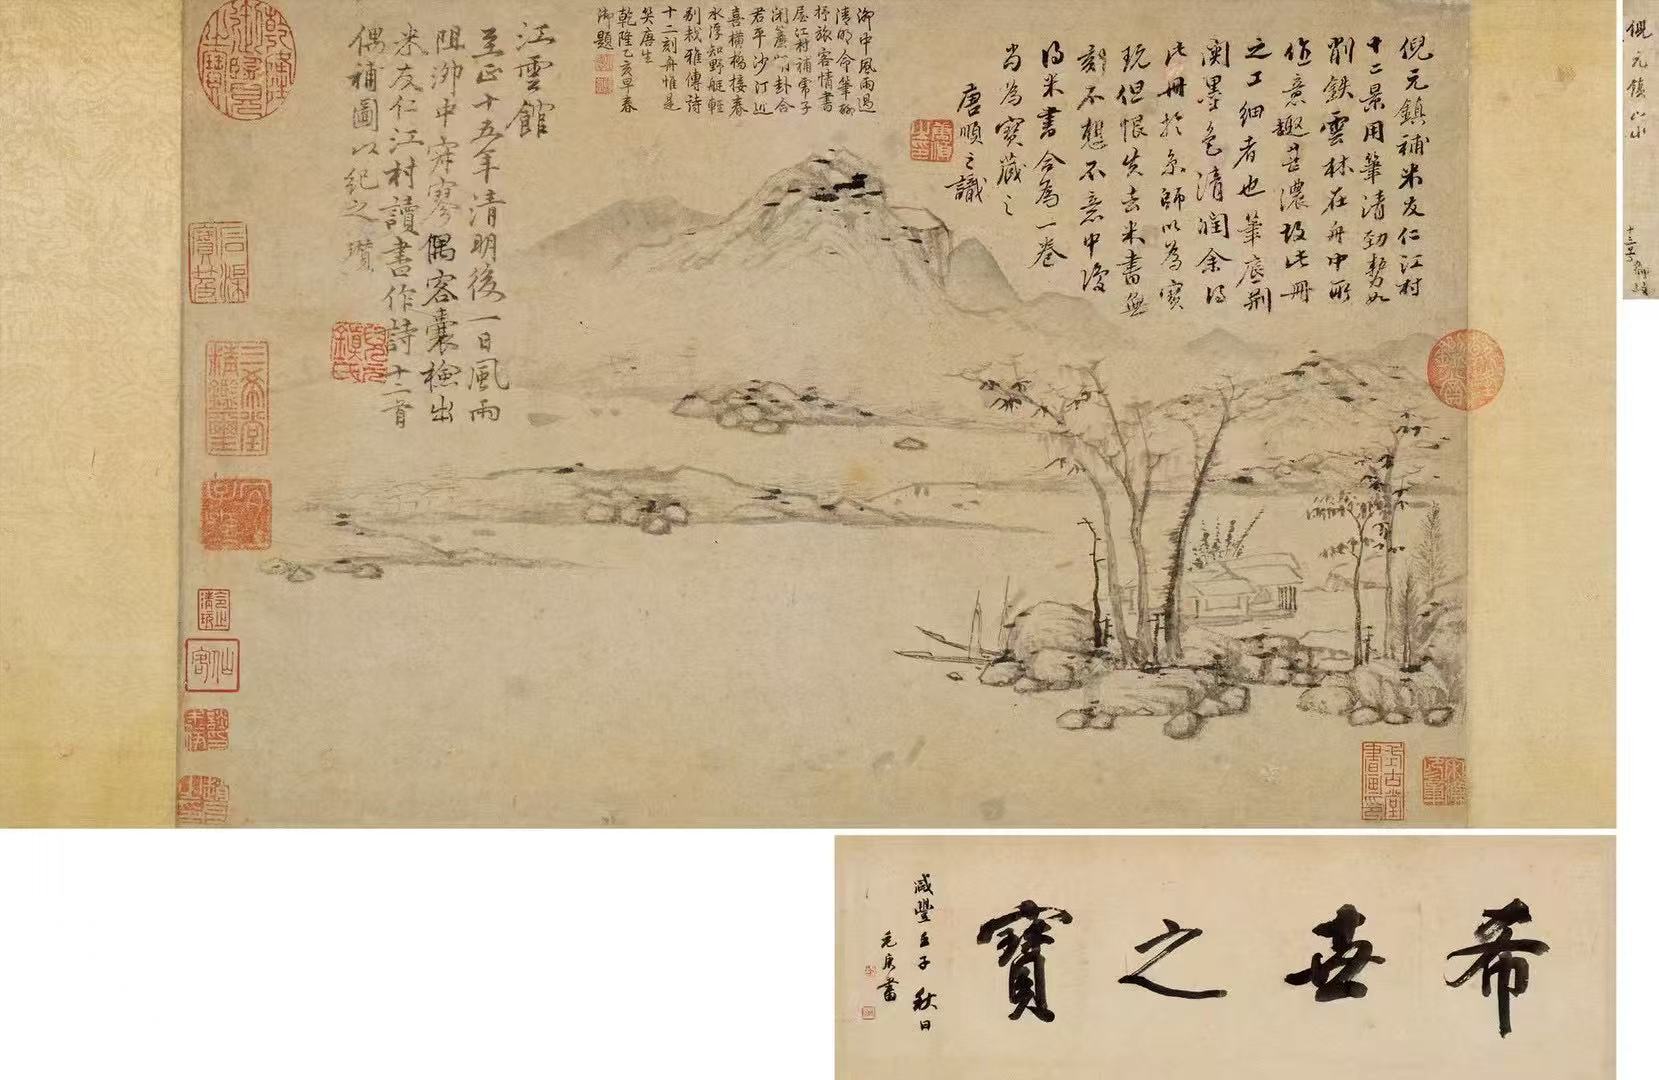 倪元鎮補米友仁江村
十二景用筆清勁勢如
削鉄雲林在舟中所
作意趣甚濃故此冊
之工細者也筆底荊
関墨色清潤余得
此冊於京師以為寶
玩但恨失去米書無
刻不想不意中復
得米書合為一卷
尚為寶藏之
唐順之識
泖中風雨過
清明命筆聊
抒旅客情書
屋江村補常子
閉簾卦合
君平沙汀近
喜橫楊接春
水浮知野艇輕
別裁雅傳詩
十二刻舟惟是
笑唐生
乾隆乙亥早春
御題
江雲館
至正十五年清明後一日風雨
阻泖中寂寥偶客囊檢出
米友仁江村讀書作詩十二首
偶補圖以紀之瓚
倪元鎮山水
希世之寶
咸豐壬子秋日
書